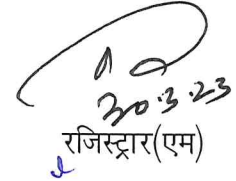 30.3.23
रजिस्ट्रार(एम)